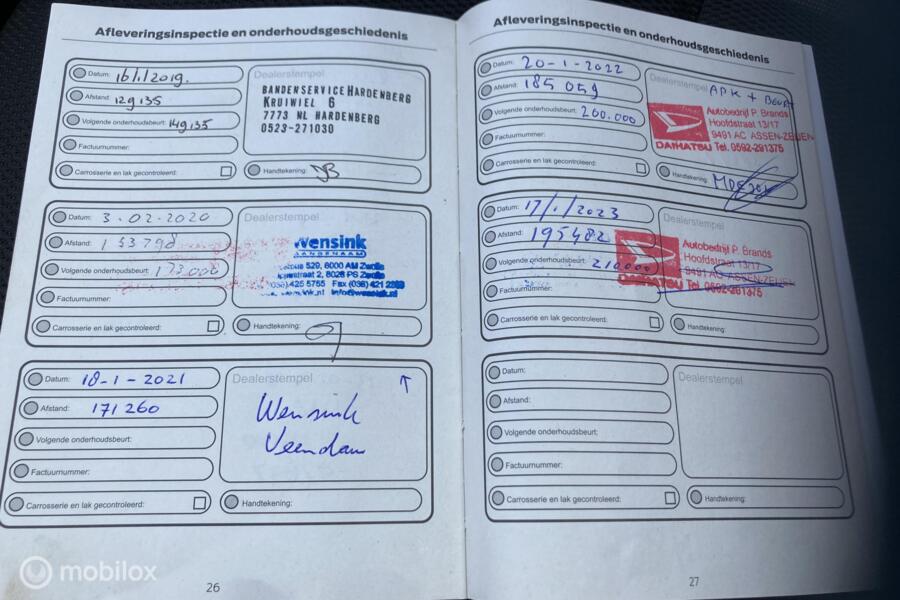 Afleveringsinspectie en onderhoudsgeschiedenis
Datum: 16/1/2019.
Afstand: 129135
Volgende onderhoudsbeurt: 149135
Factuurnummer:
Carrosserie en lak gecontroleerd:
Dealerstempel
BANDENSERVICE HARDENBERG
KRUIWIEL 6
7773 NL HARDENBERG
0523-271030
Handtekening:
Datum: 3-02-2020
Afstand: 153798
Volgende onderhoudsbeurt: 173.000
Factuurnummer:
Carrosserie en lak gecontroleerd:
Dealerstempel
Wensink
529, 8000 AM Zwolle
straat 2, 8028 PS Zwolle
425 5755 Fax (038) 421
info@wensink.nl
Handtekening:
Datum: 18-1-2021
Afstand: 171260
Volgende onderhoudsbeurt:
Factuurnummer:
Carrosserie en lak gecontroleerd:
Dealerstempel
Wensink
Veendam
Handtekening:
26
Afleveringsinspectie en onderhoudsgeschiedenis
Datum: 20-1-2022
Afstand: 185059
Volgende onderhoudsbeurt: 200.000
Factuurnummer:
Carrosserie en lak gecontroleerd:
Dealerstempel
APK + Beurt
Autobedrijf P. Brands
Hoofdstraat 13/17
9491 AC ASSEN-ZEIJEN
DAIHATSU Tel. 0592-291375
Handtekening:
Datum: 17/1/2023
Afstand: 195482
Volgende onderhoudsbeurt: 210.000
Factuurnummer:
Carrosserie en lak gecontroleerd:
Dealerstempel
Autobedrijf P. Brands
Hoofdstraat 13/17
9491 AC ASSEN-ZEIJEN
DAIHATSU Tel. 0592-291375
Handtekening:
Datum:
Afstand:
Volgende onderhoudsbeurt:
Factuurnummer:
Carrosserie en lak gecontroleerd:
Dealerstempel
Handtekening:
27
mobilox